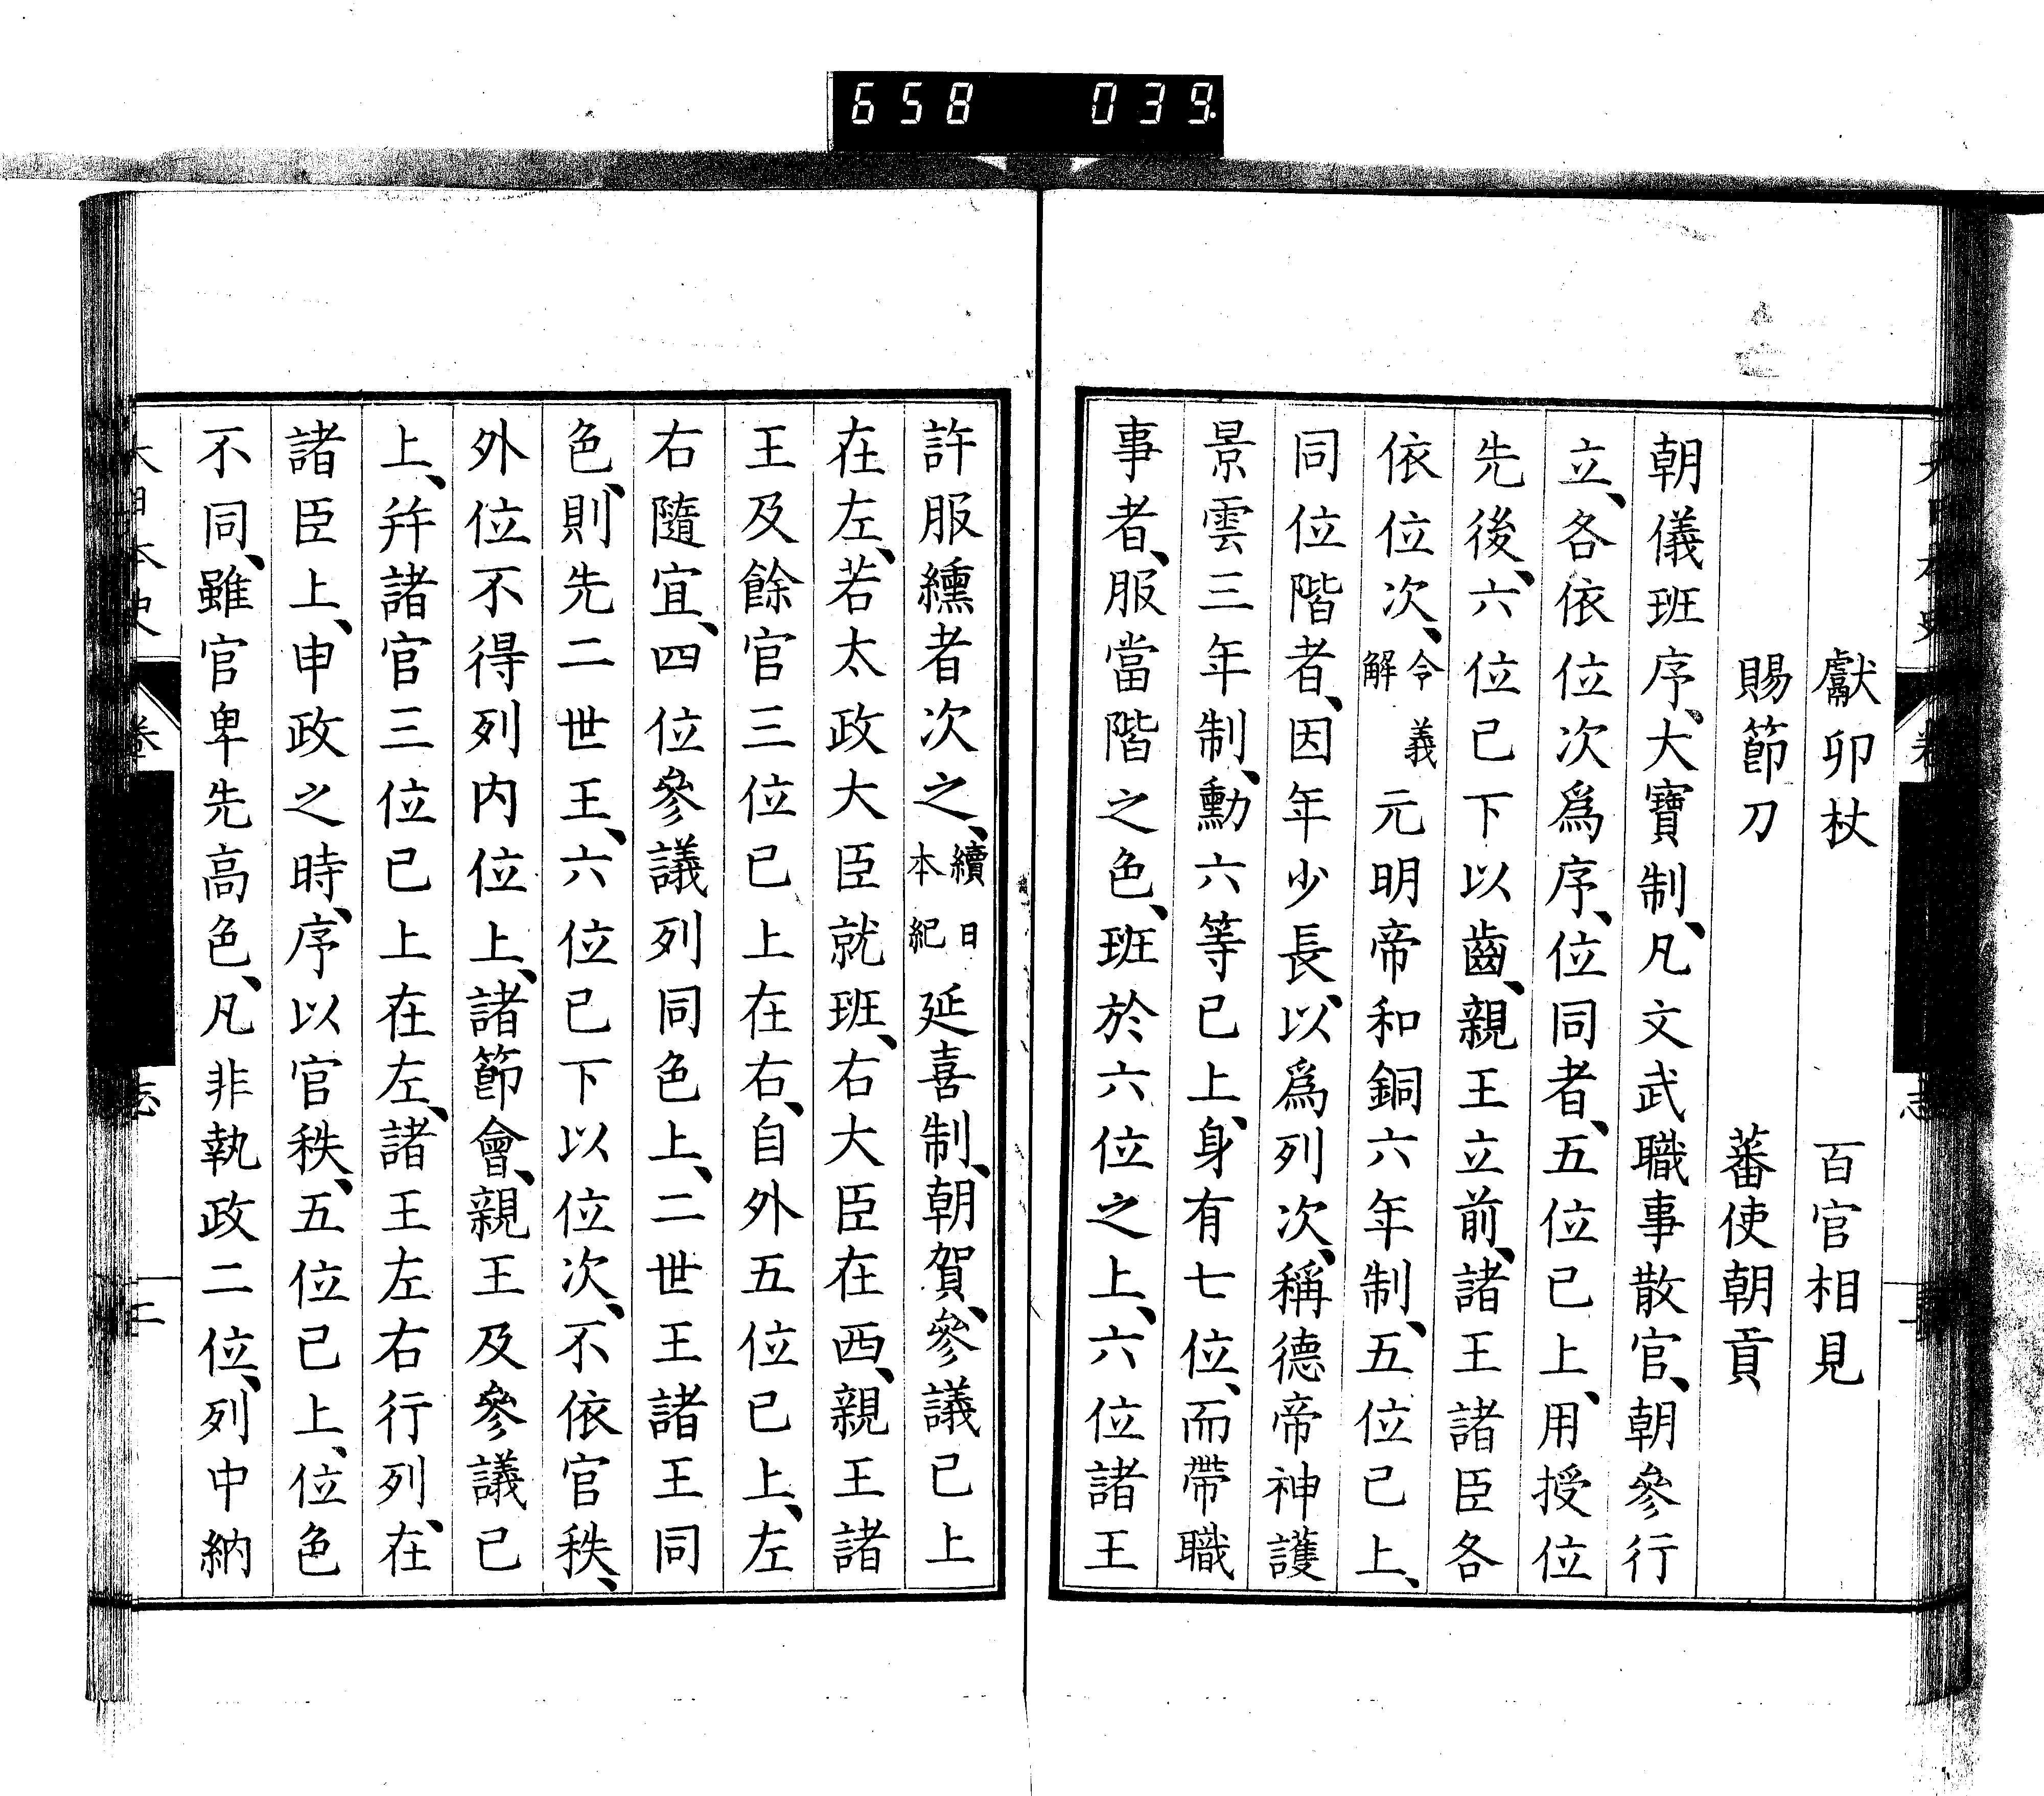 658 039
獻卯杖 百官相見
賜節刀 蕃使朝貢
朝儀班序、大寶制、凡文武職事散官、朝參行
立、各依位次爲序、位同者、五位已上、用授位
先後、六位已下以齒、親王立前、諸王諸臣各
依位次、令義解元明帝和銅六年制、五位已上、
同位階者、因年少長、以爲列次、稱德帝神護
景雲三年制、勳六等已上、身有七位、而帶職
事者、服當階之色、班於六位之上、六位諸王
許服纁者次之、續日本紀延喜制、朝賀、參議已上
在左、若太政大臣就班、右大臣在西、親王諸
王及餘官三位已上在右、自外五位已上、左
右隨宜、四位參議列同色上、二世王諸王同
色、則先二世王、六位已下以位次、不依官秩、
外位不得列内位上、諸節會、親王及參議已
上、幷諸官三位已上在左、諸王左右行列、在
諸臣上、申政之時、序以官秩、五位已上、位色
不同、雖官卑先高色、凡非執政二位、列中納
大日本史 卷 志